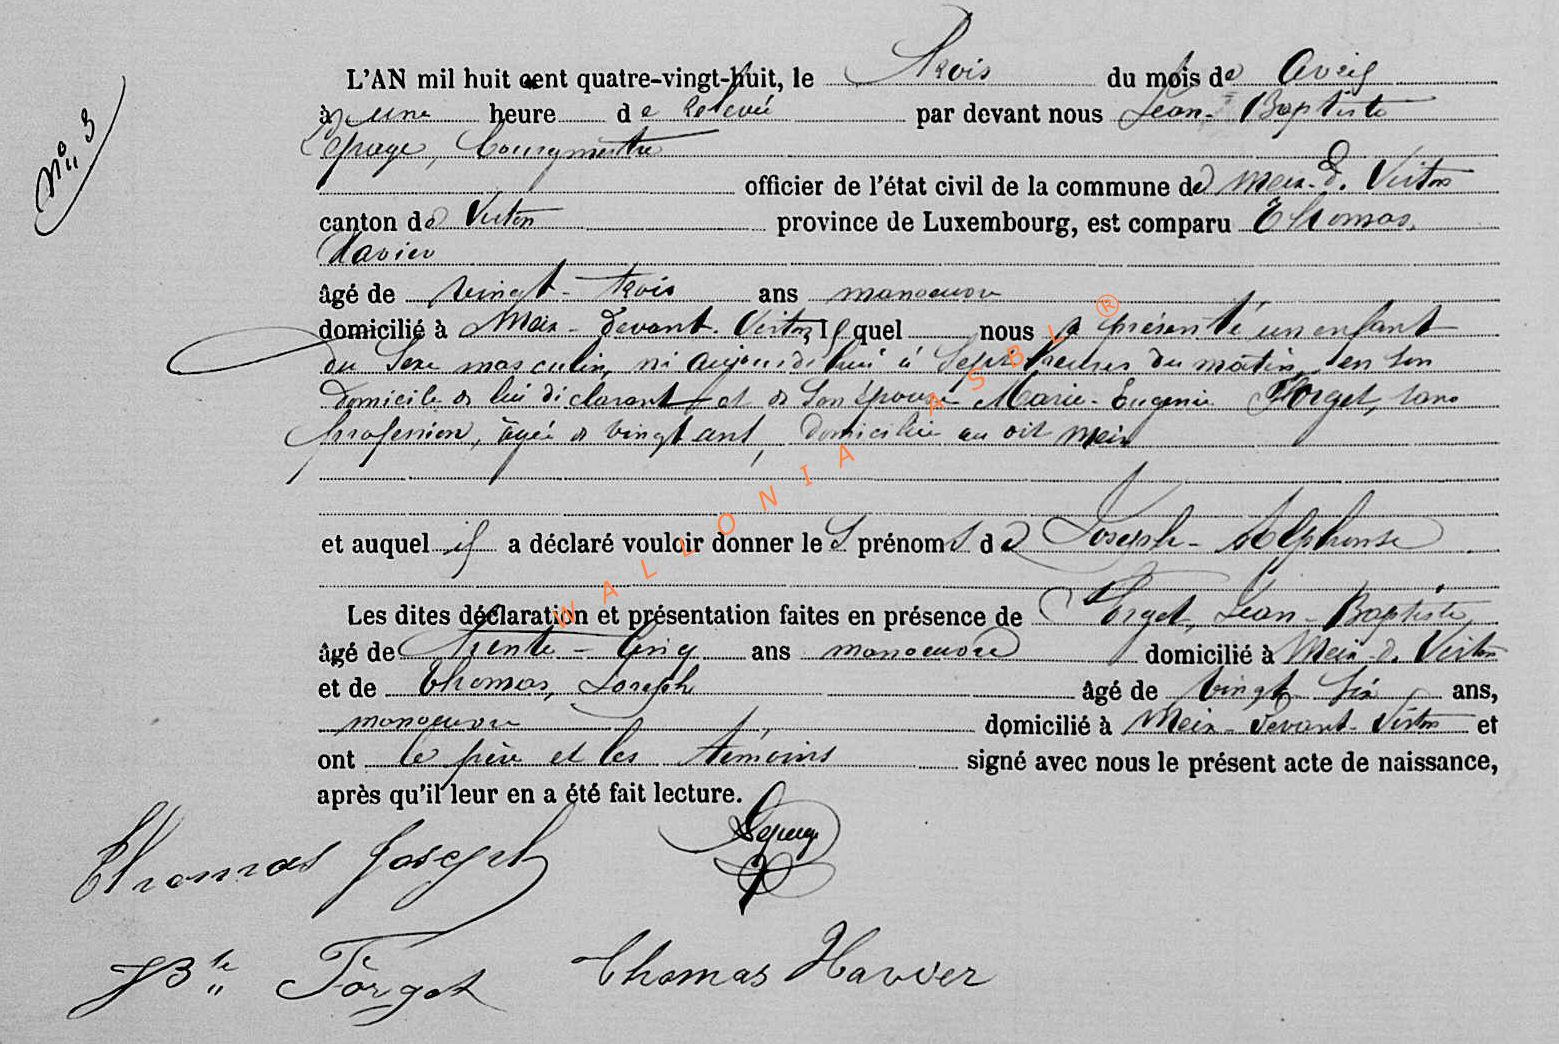 N° 3
L'AN mil huit cent quatre-vingt-huit, le Trois du mois de Avril
à une heure de relevée par devant nous Jean-Baptiste
Lepage, bourgmestre
officier de l'état civil de la commune de Meix-d. Virton
canton de Virton province de Luxembourg, est comparu Thomas,
Xavier
âgé de vingt-trois ans manoeuvre
domicilié à Meix-devant-Virton, lequel nous a présenté un enfant
du sexe masculin, né aujourd'hui à sept heures du matin, en son
domicile de lui déclarant et de son épouse Marie-Eugénie Forget, sans
profession, âgée de vingt ans, domiciliée au dit Meix
et auquel il a déclaré vouloir donner les prénoms de Joseph-Alphonse
Les dites déclaration et présentation faites en présence de Forget, Jean-Baptiste,
âgé de trente-cinq ans manoeuvre domicilié à Meix-d. Virton
et de Thomas, Joseph âgé de vingt six ans,
manoeuvre domicilié à Meix-devant-Virton et
ont le père et les témoins signé avec nous le présent acte de naissance,
après qu'il leur en a été fait lecture.
Lepage
Thomas Joseph
JBte Forget Thomas Xavier
WALLONIA ASBL ®